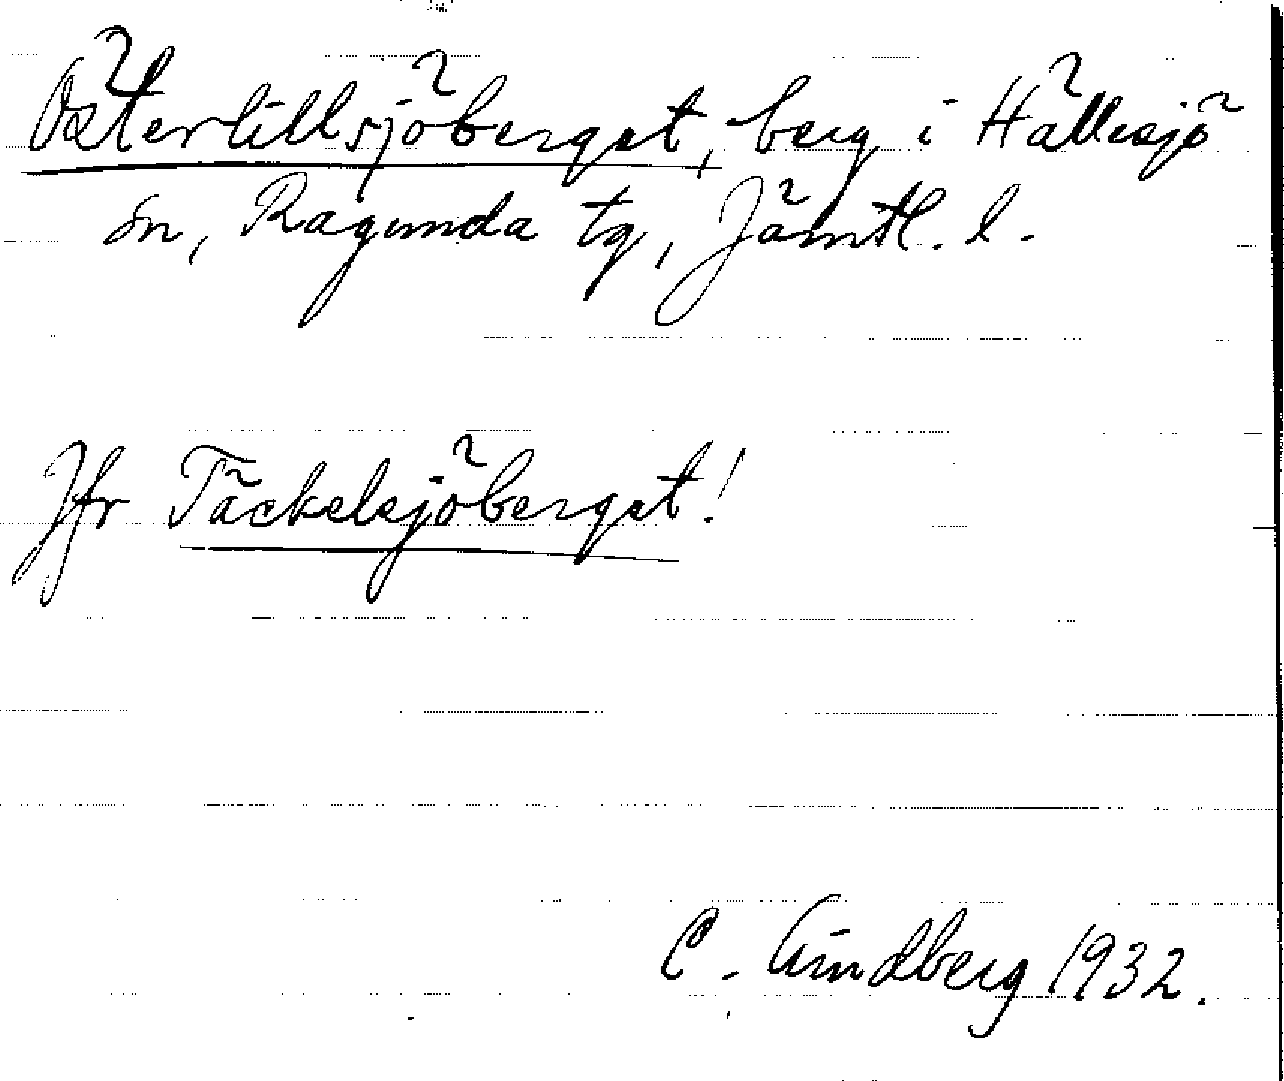 Österlillsjöberget, berg i Hällesjö
sn, Ragunda tg, Jämtl. l.
Jfr Täckelsjöberget!
C. Lindberg 1932.